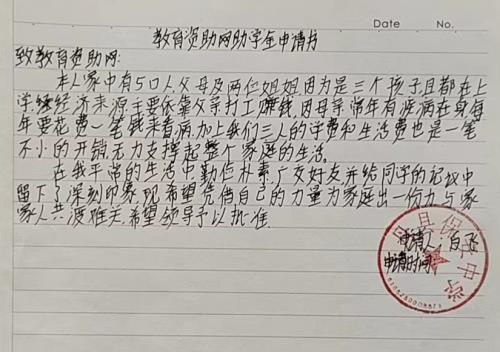 Date No.
教育资助网助学金申请书
致教育资助网:
本人家中有5口人父母及两位姐姐因为是三个孩子且都在上
学,经经济来源主要依靠父亲打工赚钱,因母亲常年有疾病在身每
年要花费一笔钱来看病,加上我们三人的学费和生活费也是一笔
不小的开销,无力支撑起整个家庭的生活。
在我平常的生活中勤俭朴素,广交好友,并给同学的记忆中
留下了深刻印象,现希望凭借自己的力量为家庭出一份力与家
家人共渡难关,希望领导予以批准.
申请人:白
申请时间:
县 中学